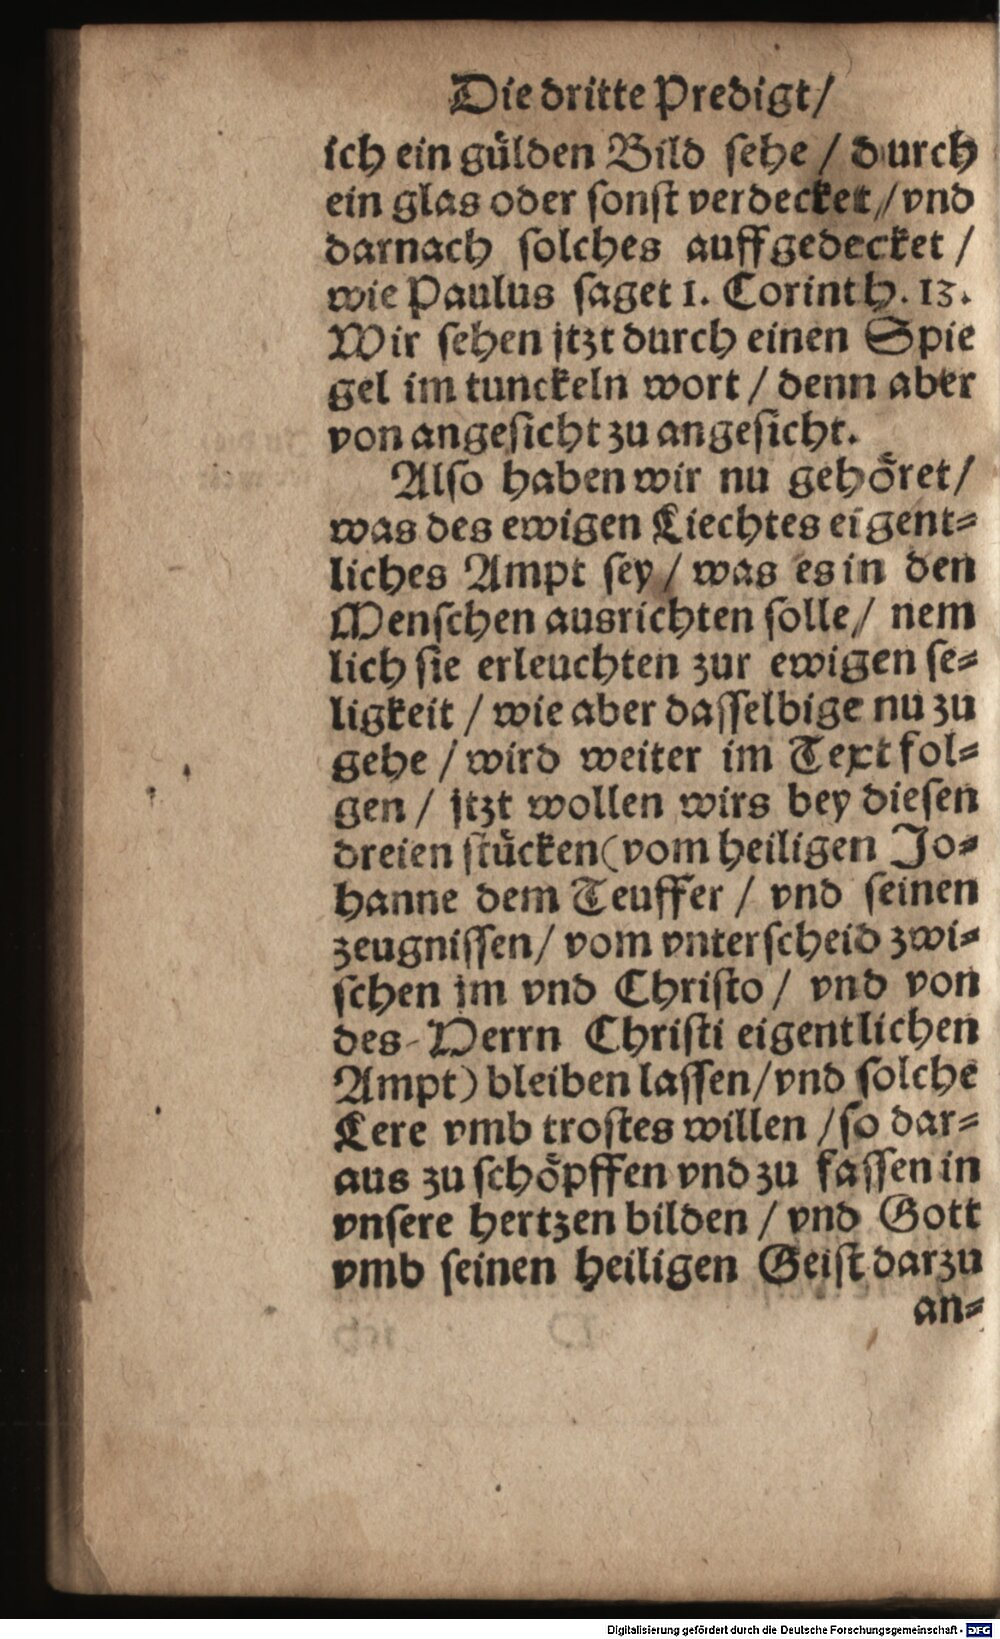 Die dritte Predigt/
ich ein guͤlden Bild sehe / durch
ein glas oder sonst verdecket / vnd
darnach solches auffgedecket /
wie Paulus saget 1. Corinth. 13.
Wir sehen jtzt durch einen Spie
gel im tunckeln wort / denn aber
von angesicht zu angesicht.
Also haben wir nu gehoͤret/
was des ewigen Liechtes eigent=
liches Ampt sey / was es in den
Menschen ausrichten solle / nem
lich sie erleuchten zur ewigen se=
ligkeit / wie aber dasselbige nu zu
gehe / wird weiter im Text fol=
gen / jtzt wollen wirs bey diesen
dreien stuͤcken (vom heiligen Jo=
hanne dem Teuffer / vnd seinen
zeugnissen / vom vnterscheid zwi=
schen jm vnd Christo / vnd von
des Herrn Christi eigentlichen
Ampt) bleiben lassen / vnd solche
Lere vmb trostes willen / so dar=
aus zu schoͤpffen vnd zu fassen in
vnsere hertzen bilden / vnd Gott
vmb seinen heiligen Geist darzu
an=
Digitalisierung gefördert durch die Deutsche Forschungsgemeinschaft - DFG